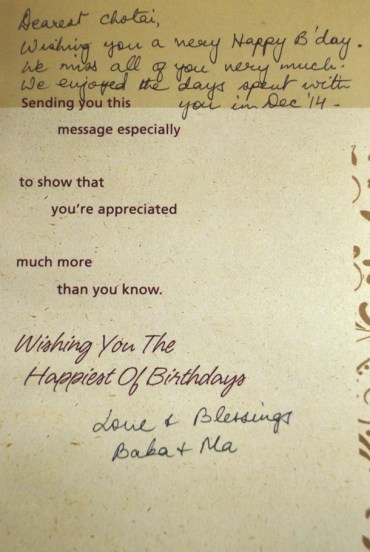 Dearest Chotai,
Wishing you a very Happy B'day.
We miss all of you very much.
We enjoyed the days spent with
you in Dec '14.
Sending you this
message especially
to show that
you're appreciated
much more
than you know.
Wishing You The
Happiest Of Birthdays
Love & Blessings
Baba & Ma